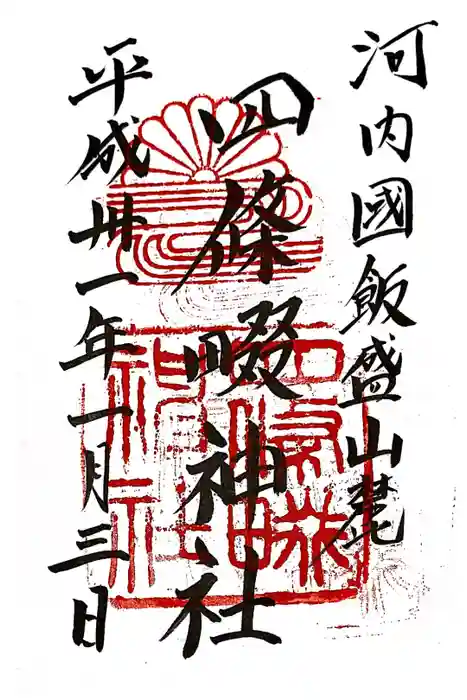 河内國飯盛山麓
四條畷神社
平成卅一年一月三日
四條畷
神社